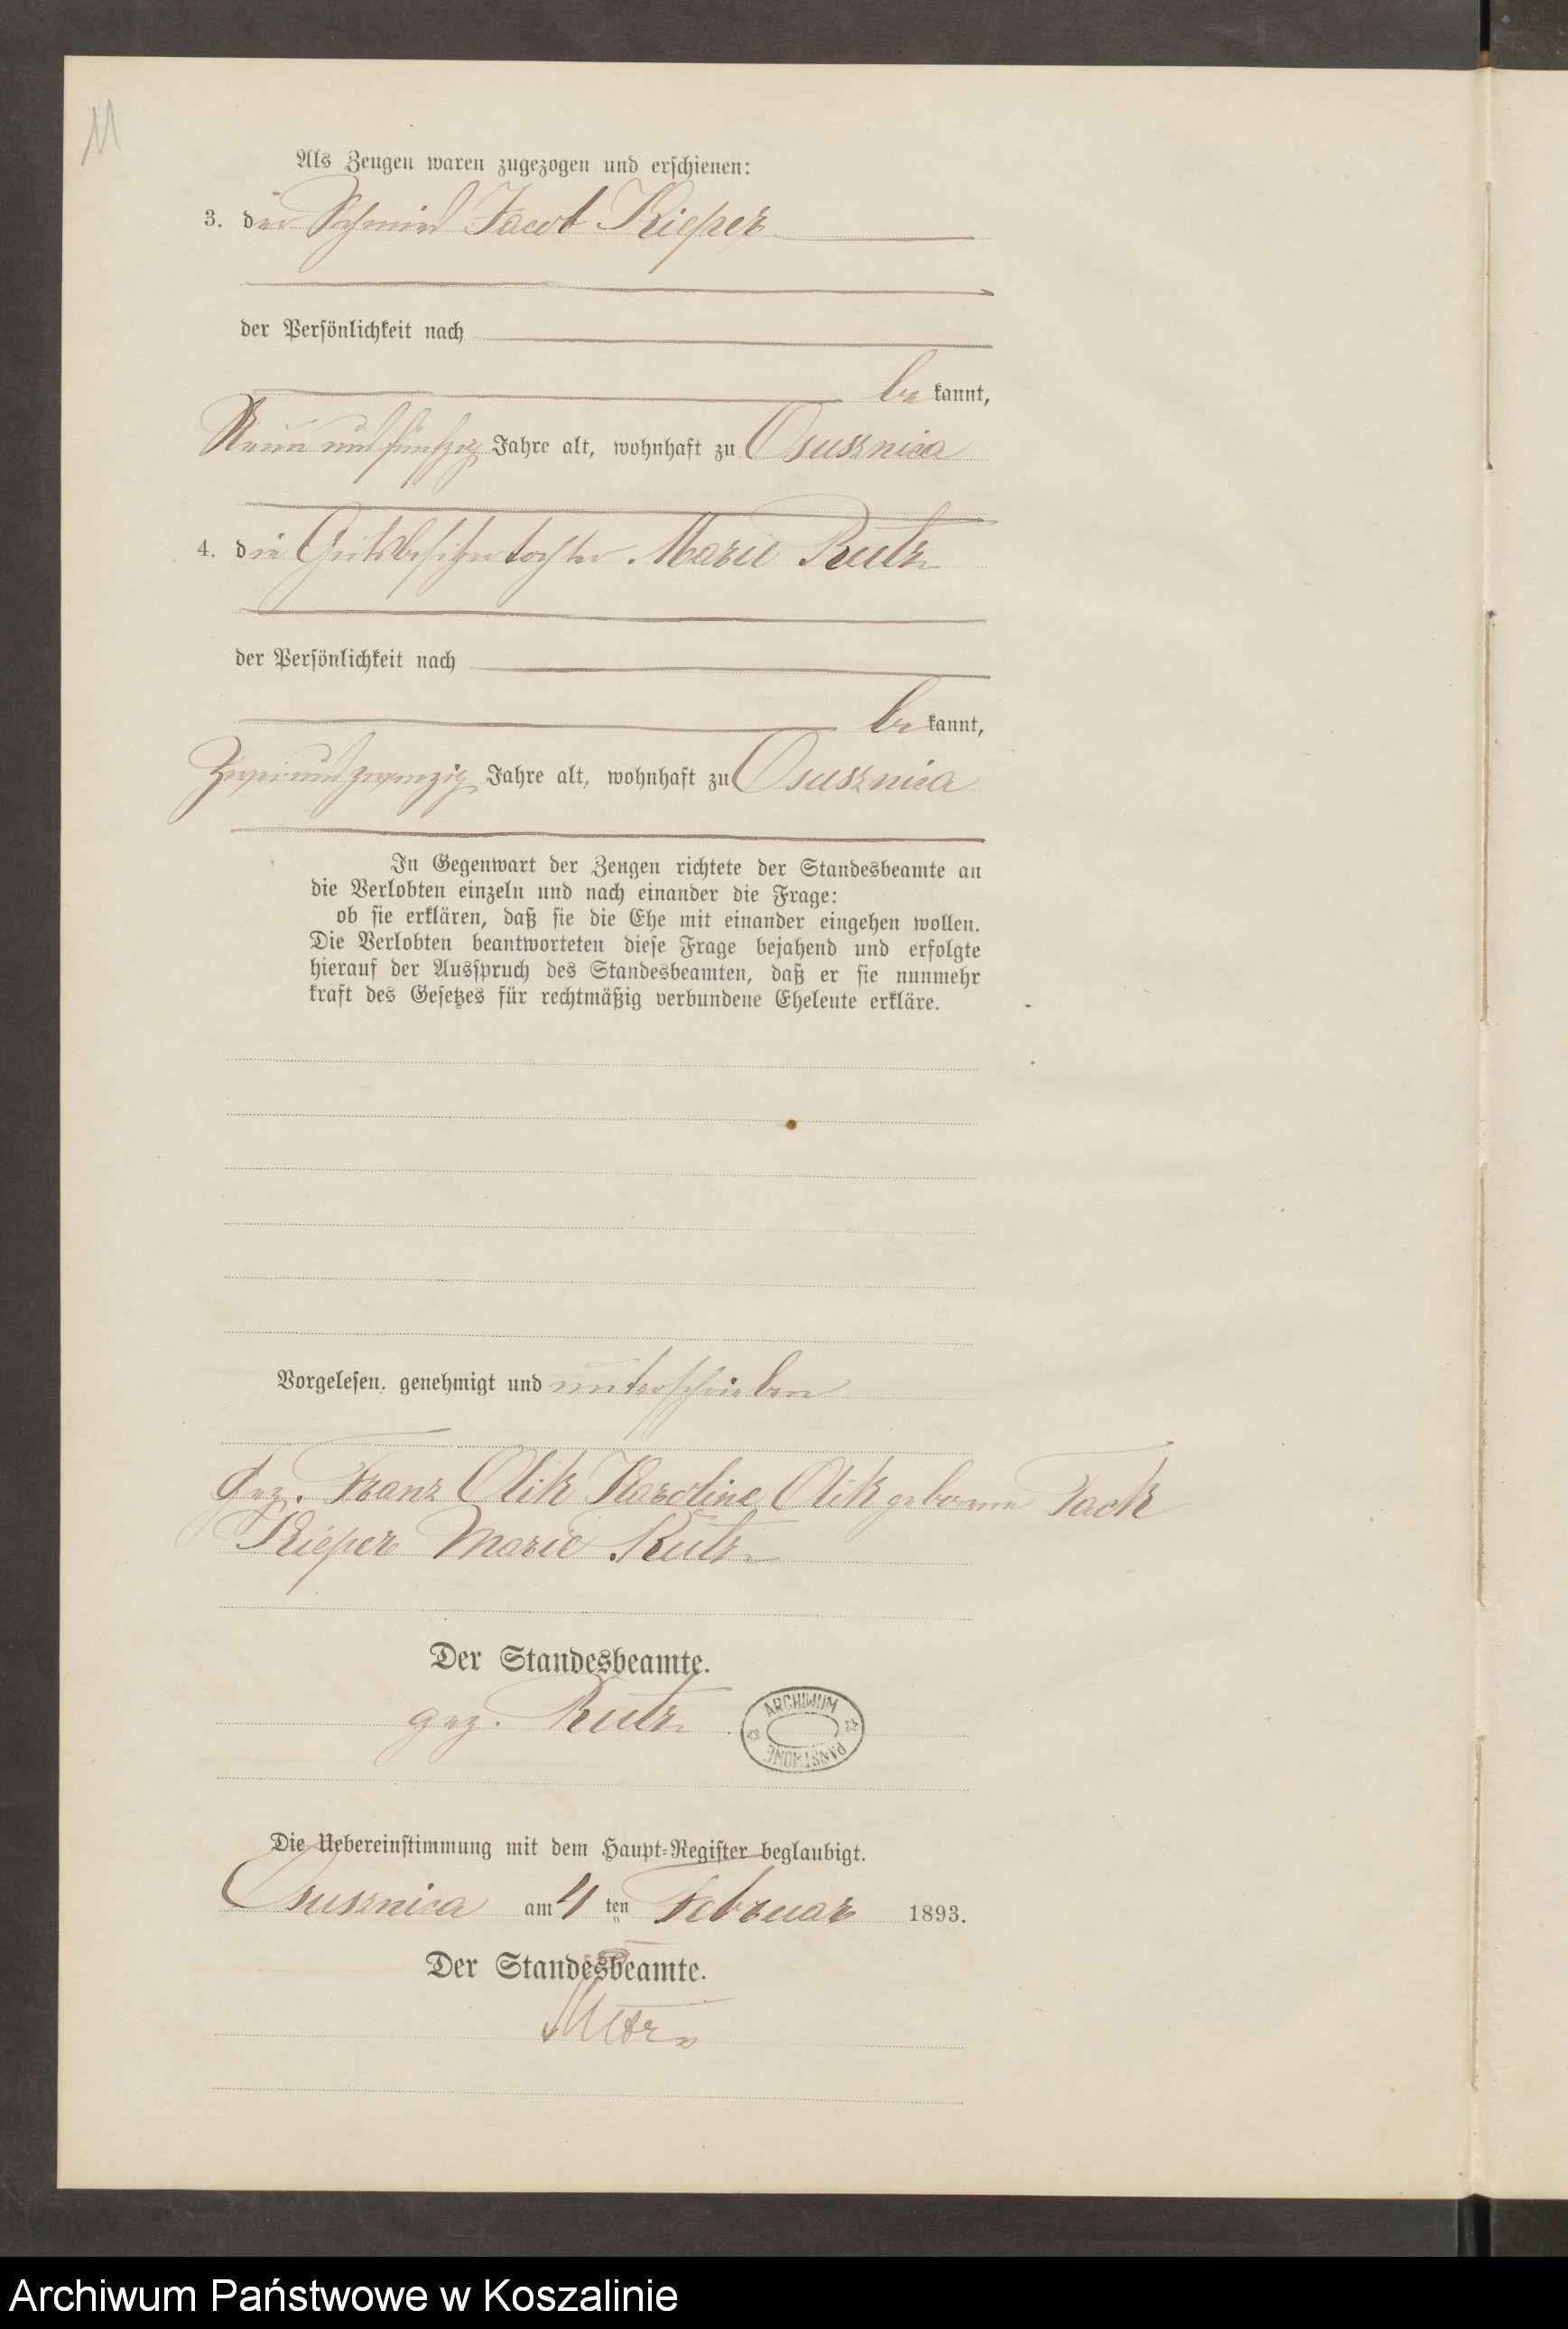 11
Als Zeugen waren zugezogen und erschienen:
3. der Schmied Jacob Kieper
der Persönlichkeit nach
be kannt,
Neun und fünfzig Jahre alt, wohnhaft zu Osusznica
4. die Gutsbesitzertochter Marie Rutz
der Persönlichkeit nach
be kannt,
Zwei und zwanzig Jahre alt, wohnhaft zu Osusznica
In Gegenwart der Zeugen richtete der Standesbeamte an
die Verlobten einzeln und nach einander die Frage:
ob sie erklären, daß sie die Ehe mit einander eingehen wollen.
Die Verlobten beantworteten diese Frage bejahend und erfolgte
hierauf der Ausspruch des Standesbeamten, daß er sie nunmehr
kraft des Gesetzes für rechtmäßig verbundene Eheleute erkläre.
Vorgelesen, genehmigt und unterschrieben
Gez. Franz Olik Karoline Olik geborene Tack
Kieper Marie Rutz
Der Standesbeamte.
gez. Rutz
ARCHIWUM PAŃSTWOWE
Die Uebereinstimmung mit dem Haupt-Register beglaubigt.
Osusznica am 4 ten Februar 1893.
Der Standesbeamte.
Rutz
Archiwum Państwowe w Koszalinie